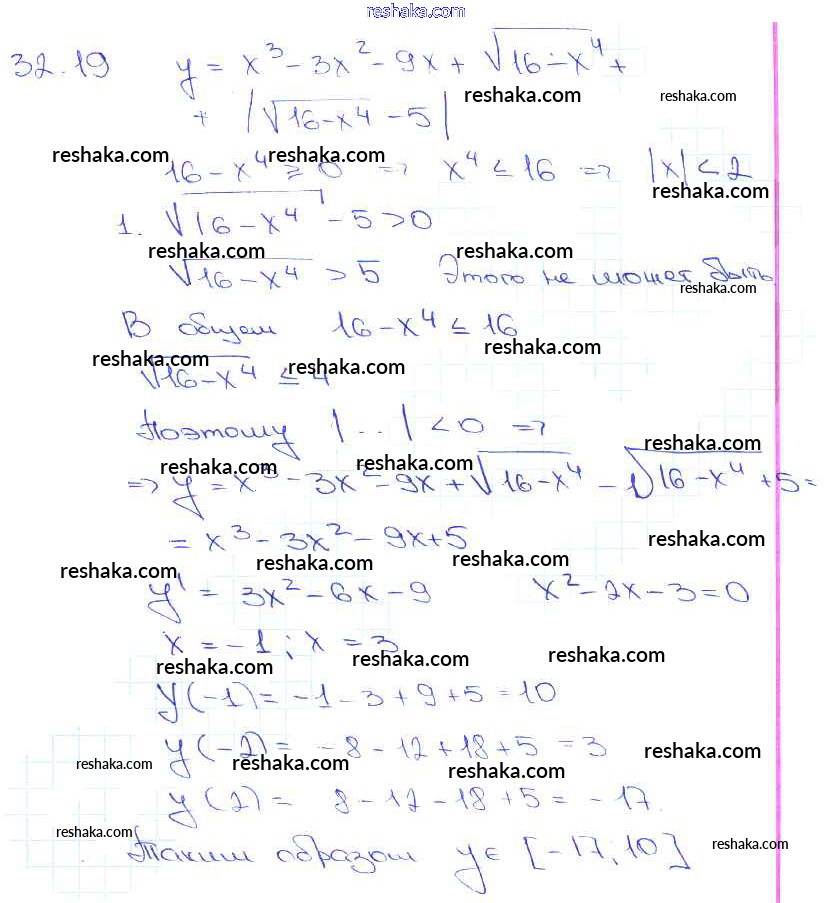 reshaka.com
32.19 y = x³ - 3x² - 9x + √16 - x⁴ +
reshaka.com reshaka.com
+ |√16-x⁴ - 5|
reshaka.com reshaka.com
16 - x⁴ ≥ 0 => x⁴ ≤ 16 => |x| < 2
reshaka.com
1. √16 - x⁴ - 5 > 0
reshaka.com reshaka.com
√16-x⁴ > 5 Этого не может быть
reshaka.com
В общем 16 - x⁴ ≤ 16
reshaka.com reshaka.com reshaka.com
√16-x⁴ ≤ 4
Поэтому |...| < 0 =>
reshaka.com
reshaka.com reshaka.com
=> y = x³ - 3x² - 9x + √16-x⁴ - √16-x⁴ + 5 =
= x³ - 3x² - 9x + 5
reshaka.com reshaka.com reshaka.com reshaka.com
y' = 3x² - 6x - 9 x² - 2x - 3 = 0
x = -1; x = 3
reshaka.com reshaka.com reshaka.com
y(-1) = -1 - 3 + 9 + 5 = 10
y(-2) = -8 - 12 + 18 + 5 = 3
reshaka.com reshaka.com reshaka.com reshaka.com
y(2) = 8 - 12 - 18 + 5 = -17.
reshaka.com reshaka.com
Таким образом y ∈ [-17; 10]